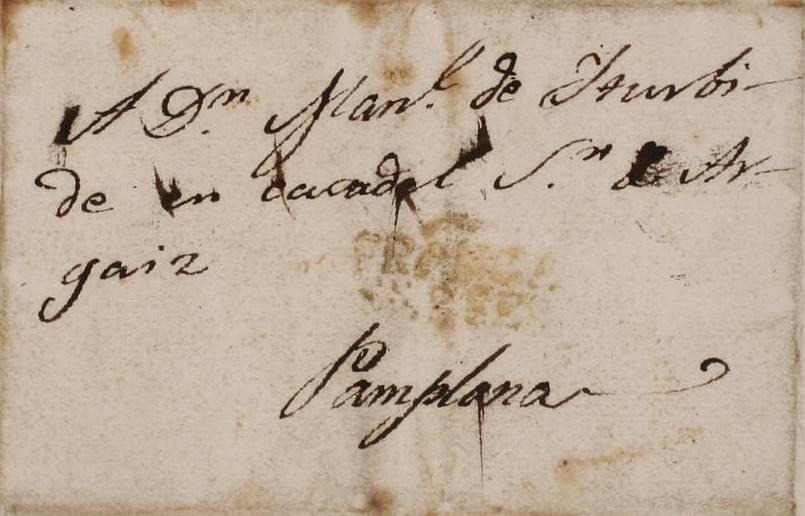 A Dn. Manl. de Yturbi-
de en cacadel Sr.n de Ar-
gaiz
Pamplona